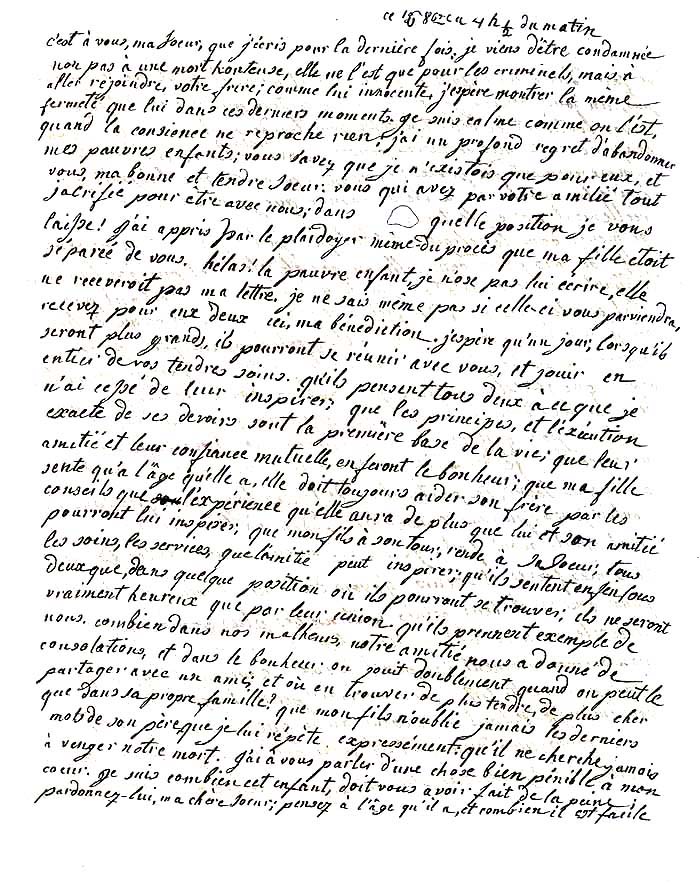 ce 16 8bre a 4 h ½ du matin
c'est à vous, ma Soeur, que j'écris pour la dernière fois. je viens d'être condamnée
non pas à une mort honteuse, elle ne l'est que pour les criminels, mais à
aller rejoindre, votre frere; comme lui innocente, j'espère montrer la même
fermeté que lui dans ces derniers moments. je suis calme comme on l'est,
quand la consience ne reproche rien, j'ai un profond regret d'abandonner
mes pauvres enfants; vous savez que je n'existois que pour eux, et
vous, ma bonne et tendre soeur. vous qui avez par votre amitié tout
sacrifié pour être avec nous; dans quelle position je vous
laisse! j'ai appris par le plaidoyer même du procès que ma fille étoit
séparée de vous. hélas! la pauvre enfant, je n'ose pas lui écrire, elle
ne receveroit pas ma lettre. je ne sais même pas si celle-ci vous parviendra,
recevez pour eux deux ici, ma bénédiction. j'espère qu'un jour, lorsqu'ils
seront plus grands, ils pourront se réunir avec vous, et jouir en
entier de vos tendres soins. qu'ils pensent tous deux à ce que je
n'ai cessé de leur inspirer; que les principes, et l'éxécution
exacte de ses devoirs sont la première base de la vie; que leur
amitié et leur confiance mutuelle, en feront le bonheur; que ma fille
sente qu'a l'âge qu'elle a, elle doit toujours aider son frère par les
conseils que l'expérience qu'elle aura de plus que lui et son amitié
pourront lui inspirer; que mon fils à son tour, rende à sa Soeur, tous
les soins, les services, que l'amitié peut inspirer; qu'ils sentent enfin tous
deux que, dans quelque position où ils pourront se trouver, ils ne seront
vraiment heureux que par leur union qu'ils prennent exemple de
nous. combien dans nos malheurs, notre amitié nous a donné de
consolations, et dans le bonheur on jouit doublement quand on peut le
partager avec un ami; et où en trouver de plus tendre, de plus cher
que dans sa propre famille? que mon fils n'oublie jamais les derniers
mots de son père, que je lui répète expressément: qu'il ne cherche jamais
à venger notre mort. j'ai à vous parler d'une chose bien pénible à mon
coeur. je sais combien cet enfant, doit vous avoir fait de la peine;
pardonnez-lui, ma chère Soeur; pensez à l'âge qu'il a, et combien il est facile